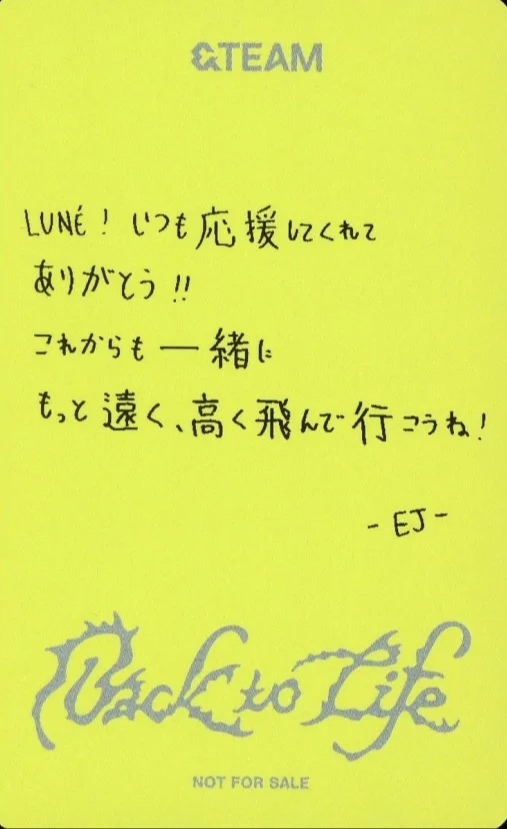 &TEAM
LUNÉ! いつも応援してくれて
ありがとう!!
これからも一緒に
もっと遠く、高く飛んで行こうね!
-EJ-
Back to Life
NOT FOR SALE